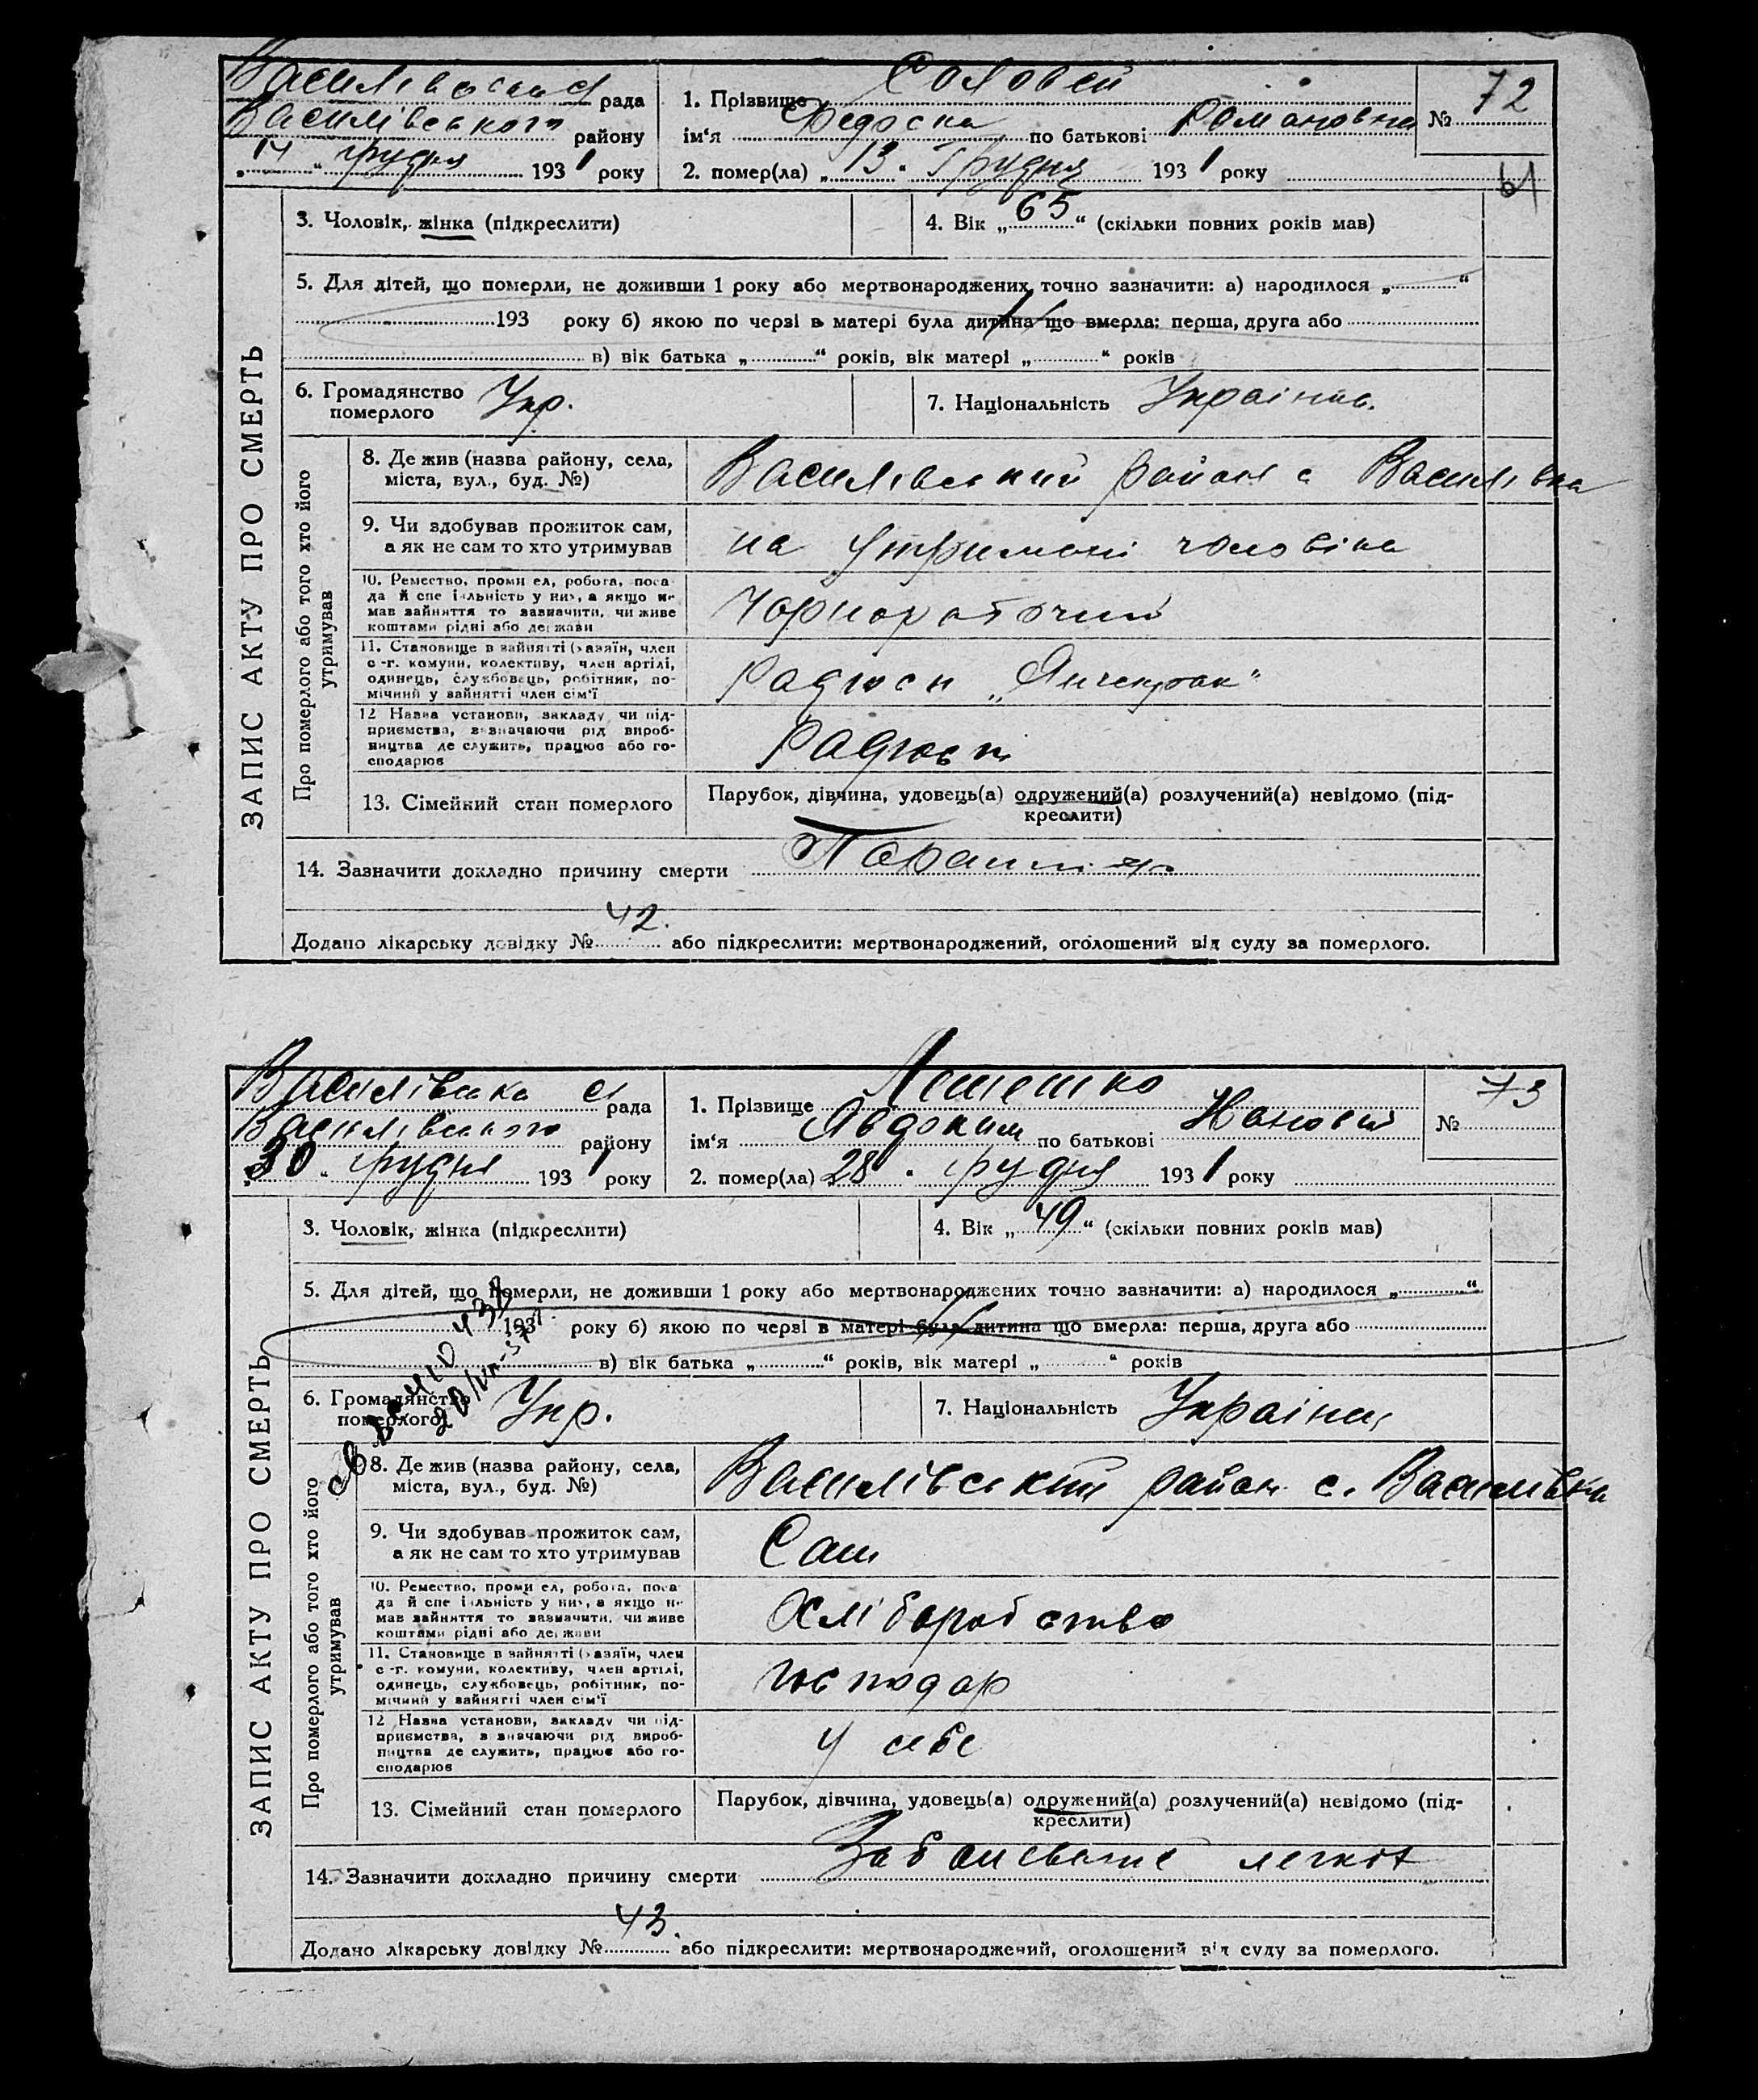 Василівська с/ рада
Василівського району
„14“ грудня 1931 року
1. Прізвище Соловей
ім‘я Федоска по батькові Романовна
2. помер(ла) „13“ Грудня 1931 року
№ 72
61
ЗАПИС АКТУ ПРО СМЕРТЬ
3. Чоловік, жінка (підкреслити)
4. Вік „65“ (скільки повних років мав)
5. Для дітей, що померли, не доживши 1 року або мертвонароджених точно зазначити: а) народилося „ “
193 року б) якою по черзі в матері була дитина що вмерла: перша, друга або
в) вік батька „ “ років, вік матері „ “ років
6. Громадянство
померлого Укр.
7. Національність Україн.
Про померлого або того хто його
утримував
8. Де жив (назва району, села,
міста, вул., буд. №)
Василівський район с Василівка
9. Чи здобував прожиток сам,
а як не сам то хто утримував
на утримані чоловіка
10. Ремество, промисел, робота, поса
да й спеціяльність у них, а якщо не
мав зайняття то зазначити, чи живе
коштами рідні або держави
Чорноробочий
11. Становище в зайнятті (хазяїн, член
с.-г. комуни, колективу, член артілі,
одинець, службовець, робітник, по-
мічний у зайнятті член сім‘ї
Радгосп
12 Назва установи, закладу чи під-
приємства, зазначаючи рід вироб-
ництва де служить, працює або го-
сподарює
Радгосп
13. Сімейний стан померлого
Парубок, дівчина, удовець(а) одружений(а) розлучений(а) невідомо (під-
креслити)
14. Зазначити докладно причину смерти
Додано лікарську довідку № 42. або підкреслити: мертвонароджений, оголошений від суду за померлого.
Василівська с/ рада
Василівського району
„30“ грудня 1931 року
1. Прізвище
ім‘я Явдоким по батькові
2. помер(ла) 28 “ грудня 1931 року
№ 73
ЗАПИС АКТУ ПРО СМЕРТЬ
3. Чоловік, жінка (підкреслити)
4. Вік „49“ (скільки повних років мав)
5. Для дітей, що померли, не доживши 1 року або мертвонароджених точно зазначити: а) народилося „ “
193 року б) якою по черзі в матері була дитина що вмерла: перша, друга або
в) вік батька „ “ років, вік матері „ “ років
6. Громадянство
померлого Укр.
7. Національність Україн.
Про померлого або того хто його
утримував
8. Де жив (назва району, села,
міста, вул., буд. №)
Василівський район с. Василівка
9. Чи здобував прожиток сам,
а як не сам то хто утримував
Сам
10. Ремество, промисел, робота, поса
да й спеціяльність у них, а якщо не
мав зайняття то зазначити, чи живе
коштами рідні або держави
Хліборобство
11. Становище в зайнятті (хазяїн, член
с.-г. комуни, колективу, член артілі,
одинець, службовець, робітник, по-
мічний у зайнятті член сім‘ї
господар
12 Назва установи, закладу чи під-
приємства, зазначаючи рід вироб-
ництва де служить, працює або го-
сподарює
у себе
13. Сімейний стан померлого
Парубок, дівчина, удовець(а) одружений(а) розлучений(а) невідомо (під-
креслити)
14. Зазначити докладно причину смерти Заболевание легких
Додано лікарську довідку № 43. або підкреслити: мертвонароджений, оголошений від суду за померлого.